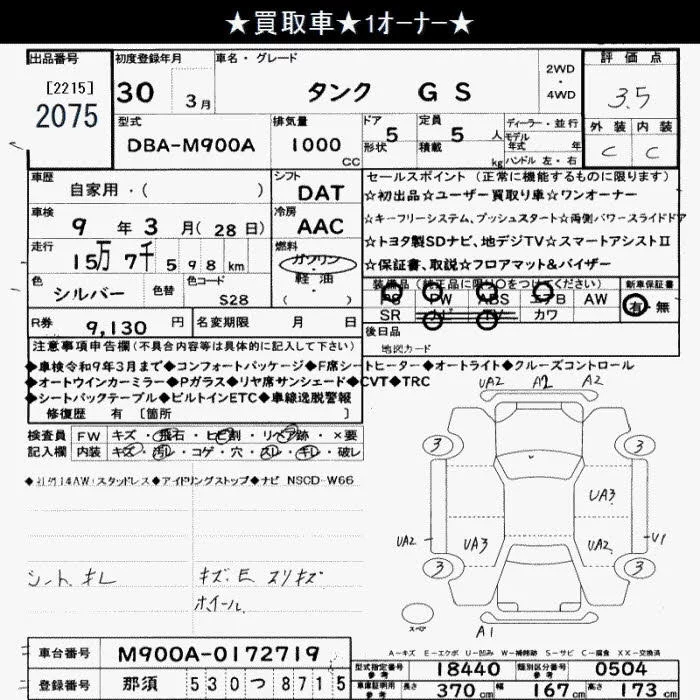 ★買取車★1オーナー★
出品番号
[2215]
2075
初度登録年月
30
3月
車名・グレード
タンク GS
2WD
・
4WD
評価点
3.5
外装 内装
C C
型式
DBA-M900A
排気量
1000
CC
ドア
5
形状
定員
5 人
積載
kg
ディーラー・並行
モデル
年式 年
ハンドル 左・右
車歴
自家用・( )
シフト
DAT
セールスポイント (正常に機能するものに限ります)
☆初出品☆ユーザー買取り車☆ワンオーナー
☆キーフリーシステム、プッシュスタート☆両側パワースライドドア
☆トヨタ製SDナビ、地デジTV☆スマートアシストⅡ
☆保証書、取説☆フロアマット&バイザー
車検
9 年 3 月(28日)
冷房
AAC
走行
15万 7千 598 km
燃料
ガソリン
・
軽油
色
シルバー
色替
色コード
S28
装備品(純正品に限り○をつけてください)
PS PW ABS エアB AW
SR ナビ TV カワ
新車保証書
有・無
R券
9,130 円
名変期限 月 日
後日品
地図カード
注意事項申告欄(不具合内容等は具体的に記入して下さい)
◆車検令和9年3月まで◆コンフォートパッケージ◆F席シートヒーター◆オートライト◆クルーズコントロール
◆オートウインカーミラー◆Pガラス◆リヤ席サンシェード◆CVT◆TRC
◆シートバックテーブル◆ビルトインETC◆車線逸脱警報
修復歴 有 [箇所 ]
検査員
記入欄
FW キズ・飛石・ヒビ割・リペア跡・×要
内装 キズ・汚レ・コゲ・穴・スレ・キレ・破レ
◆社外14AW・スタッドレス◆アイドリングストップ◆ナビ NSCD-W66
シート キレ
キズ. E スリキズ
ホイール
UA2 A2 A2
3 3
UA3
UA2 UA3 UA2 V1
3 3
スペア
A1
A-キズ E-エクボ U-凹み W-補修跡 S-サビ C-腐食 XX-交換済
車台番号
M900A-0172719
登録番号
那須 530 つ 8715
型式指定番号
参考
18440
類別区分番号
参考
0504
車庫証明用
参考
長さ 370 cm
幅 167 cm
高さ 173 cm